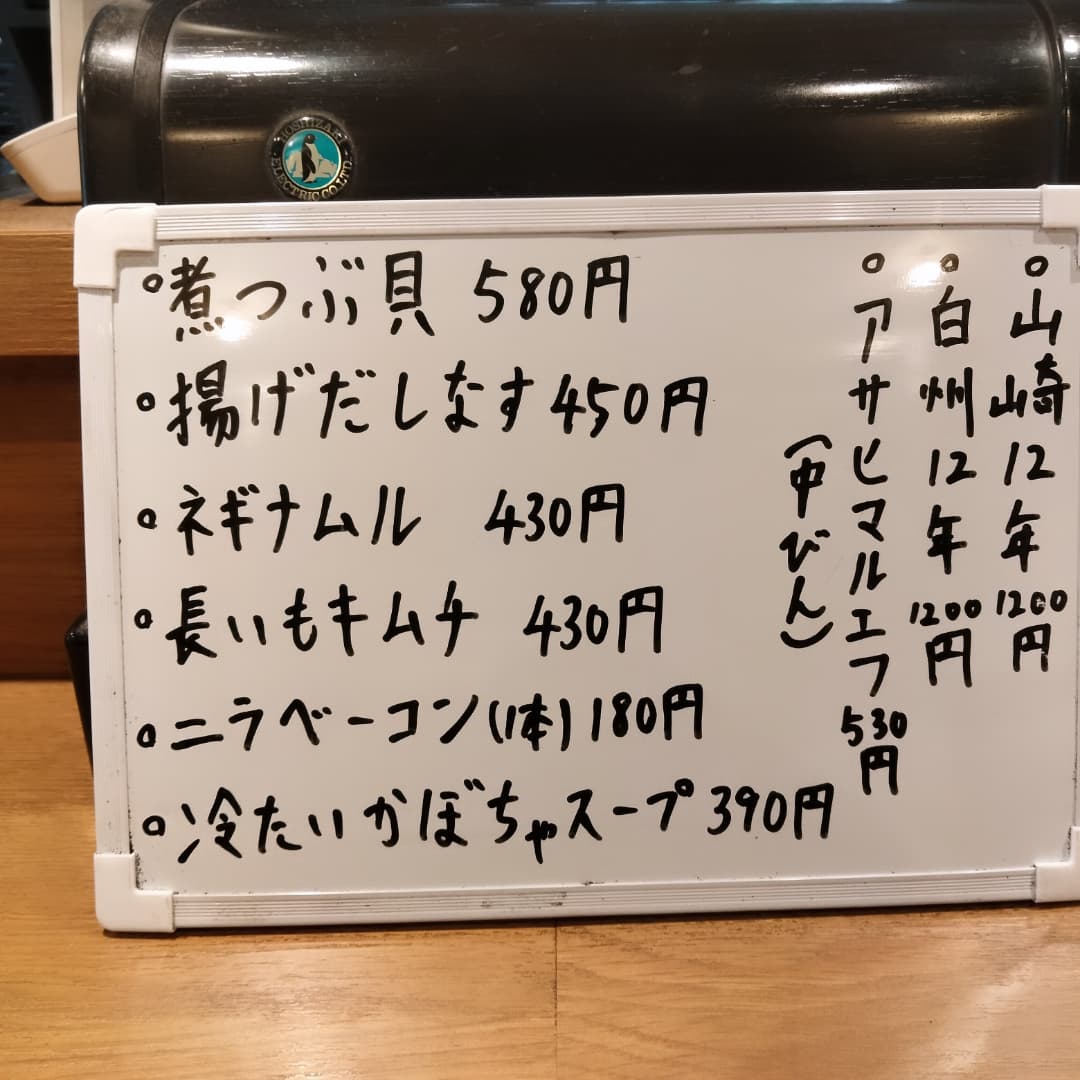 HOSHIZAKI
ELECTRIC CO.LTD.
煮つぶ貝 580円
揚げだしなす450円
ネギナムル 430円
長いもキムチ 430円
ニラベーコン(1本)180円
冷たいかぼちゃスープ390円
山崎12年1200円
白州12年1200円
アサヒマルエフ530円
(中びん)